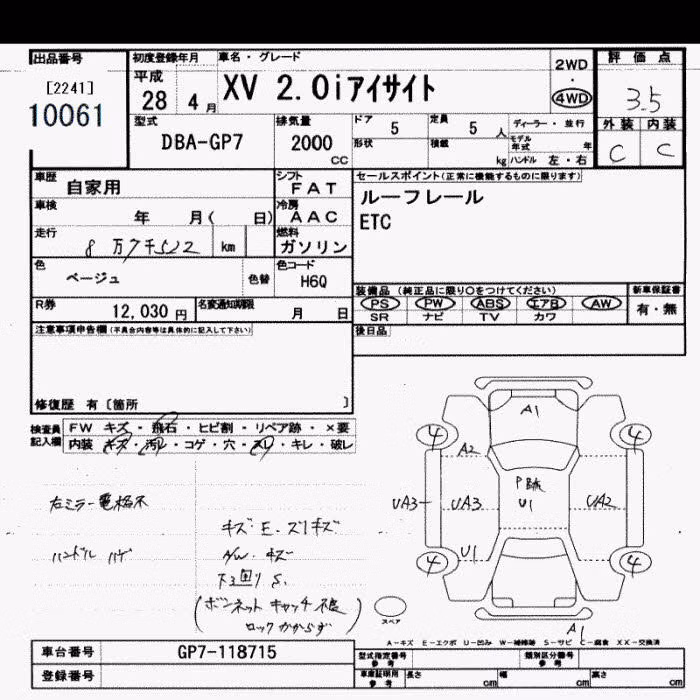 出品番号
[2241]
10061
初度登録年月
平成
28 4月
車名・グレード
XV 2.0iアイサイト
2WD
・
4WD
評価点
3.5
外装 内装
C C
型式
DBA-GP7
排気量
2000
CC
ドア 5
定員 5 人
ディーラー・並行
形状
積載
kg
モデル年式 年
ハンドル 左・右
車歴
自家用
シフト
FAT
セールスポイント(正常に機能するものに限ります)
ルーフレール
ETC
車検
年 月( 日)
冷房
AAC
走行
8万7千522 km
燃料
ガソリン
色
ベージュ
色替
色コード
H6Q
装備品 (純正品に限り○をつけてください)
PS PW ABS エアB AW
SR ナビ TV カワ
新車保証書
有・無
R券
12,030 円
名変通知期限
月 日
後日品
注意事項申告欄(不具合内容等は具体的に記入して下さい)
修復歴 有〔箇所 〕
検査員記入欄
FW キズ・飛石・ヒビ割・リペア跡・×要
内装 キズ・汚れ・コゲ・穴・スレ・キレ・破レ
右ミラー電格不
ハンドル ハゲ
キズ E・スリキズ
A/W・キズ
下回り S.
(ボンネット キャッチ 不良
ロックかからず)
A1
4 4
A2
UA3 UA3 UA2
U1
U1
4 4
A1
スペア
A-キズ E-エクボ U-凹み W-補修跡 S-サビ C-腐食 XX-交換済
車台番号
GP7-118715
登録番号
型式指定番号
参考
類別区分番号
参考
車庫証明用
参考
長さ cm
幅 cm
高さ cm